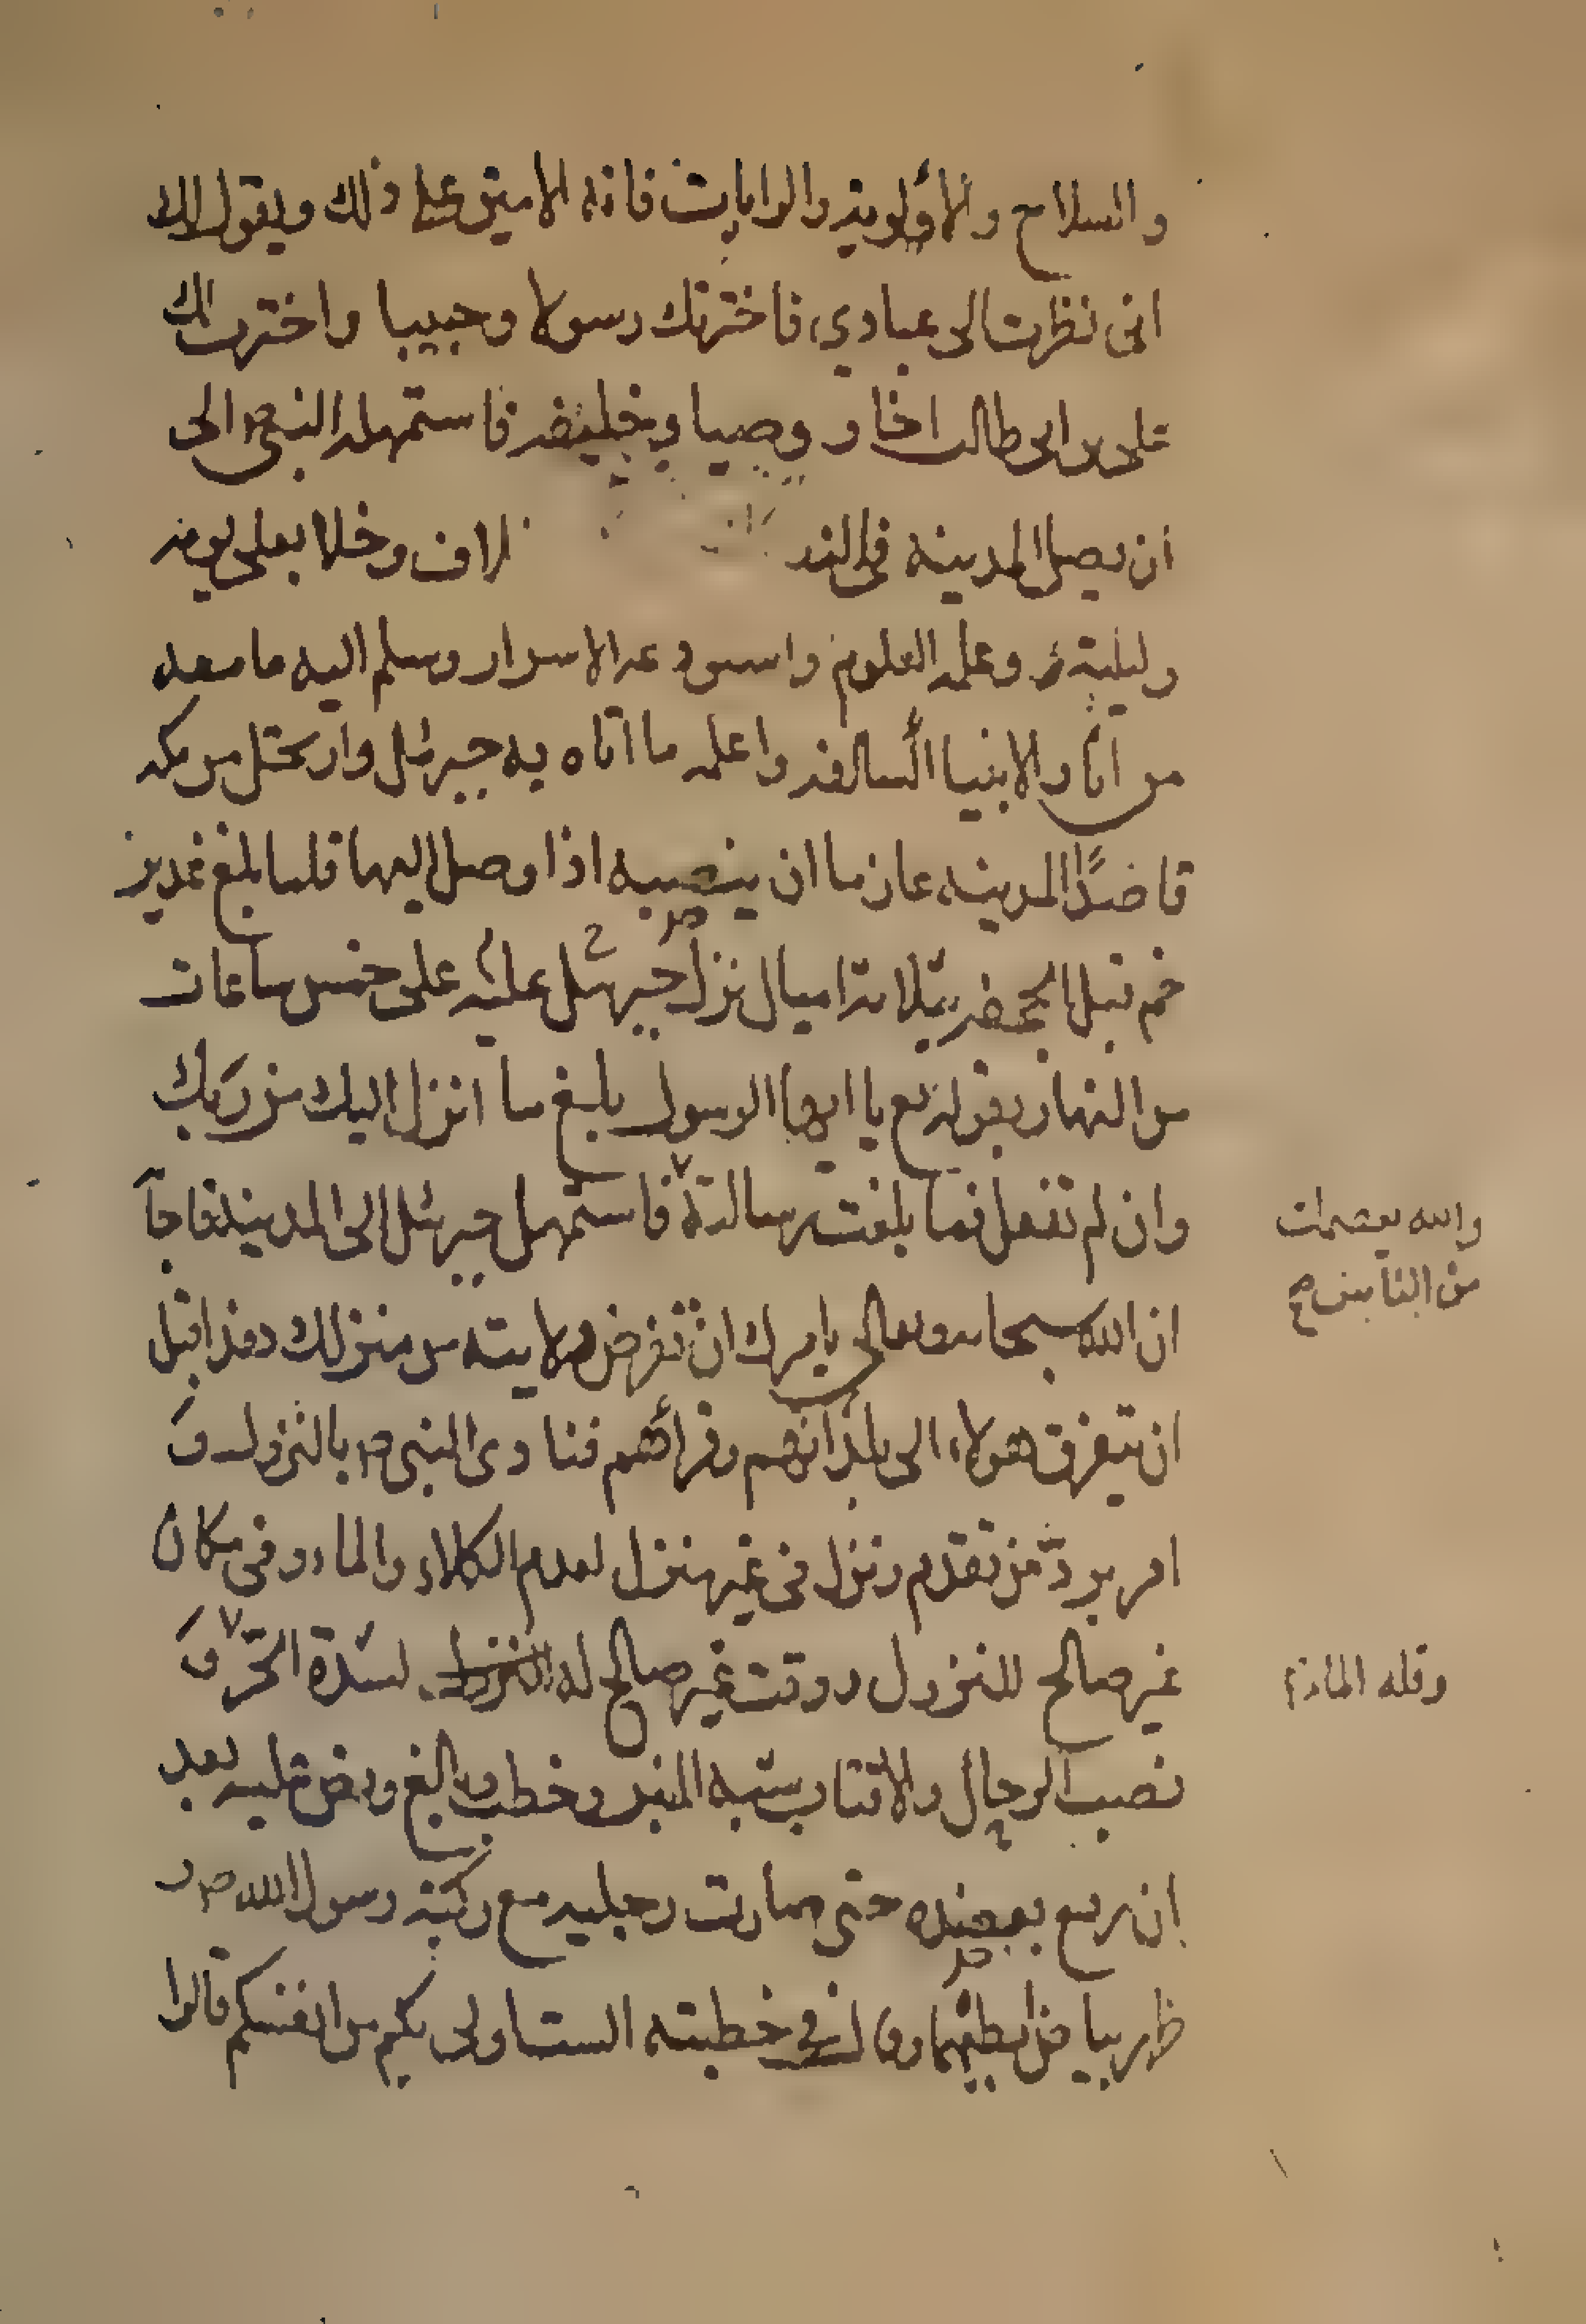 والسلاح والألوية والرايات فانه الامين على ذلك ويقول لك
انى نظرت الى عبادي فاخترتك رسولا وحبيبا واخترت لك
على بن ابى طالب اخا و وصيا وخليفة فاستمهله النبى ص الى
ان يصل المدينه وخلا بعلى يومه
وليلته وعلمه العلوم الاسرار وسلم اليه ما معه
من اثار الانبيا السالفه واعلمه ما اتاه به جبرئيل وارتحل من مكه
قاصدًا المدينه عازما ان ينصبه اذا وصل اليها فلما بلغ غدير
خم قبل الجحفه بثلاثة اميال نزل جبرئيل عليه على خمس ساعات
من النهار بقوله تع يا ايها الرسول بلغ ما انزل اليك من ربك
وان لم تفعل فما بلغت رسالته فاستمهل جبرئيل الى المدينه
والله يعصمك
من الناس صح
ان الله سبحانه وتعالى يامرك ان تفرض ولايته من منزلك هذا قبل
ان تتفرق هولاء الى بلدانهم وقرائهم فنادى النبى ص بالنزول و
امر برد من تقدم ونزل فى غير منزل لعدم الكلاء والماء وفى مكان
غير صالح للنزول ووقت غير صالح له لشدة الحر و
وقله الماء
نصب الرحال والاقتاب شبه المنبر وخطب وبالغ ونص عليه بعد
ان رفع بعضده حتى صارت رجليه مع ركبة رسول الله ص و
ظهر بياض ابطيهما وقال فى خطبته الست اولى بكم من انفسكم قالوا